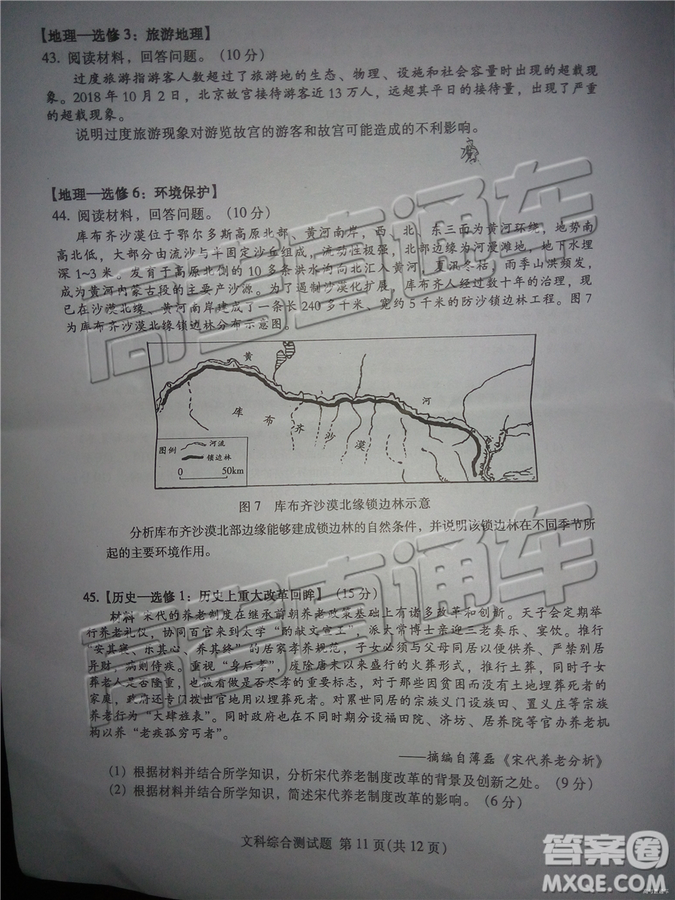 【地理—选修3：旅游地理】
43. 阅读材料，回答问题。（10分）
过度旅游指游客人数超过了旅游地的生态、物理、设施和社会容量时出现的超载现
象。2018年10月2日，北京故宫接待游客近13万人，远超其平日的接待量，出现了严重
的超载现象。
说明过度旅游现象对游览故宫的游客和故宫可能造成的不利影响。
【地理—选修6：环境保护】
44. 阅读材料，回答问题。（10分）
库布齐沙漠位于鄂尔多斯高原北部、黄河南岸，西、北、东三面为黄河环绕，地势南
高北低，大部分由流沙与半固定沙丘组成，流动性极强，北部边缘为河漫滩地，地下水埋
深1~3米，发育于高原北侧的10多条洪水沟向北汇入黄河，夏汛冬枯，雨季山洪频发，
成为黄河内蒙古段的主要产沙源。为了遏制沙漠化扩展，库布齐人经过数十年的治理，现
已在沙漠北缘、黄河南岸建成了一条长240多千米、宽约5千米的防沙锁边林工程。图7
为库布齐沙漠北缘锁边林分布示意图。
黄
河
库布齐沙漠
图例
河流
锁边林
0 50km
图7 库布齐沙漠北缘锁边林示意
分析库布齐沙漠北部边缘能够建成锁边林的自然条件，并说明该锁边林在不同季节所
起的主要环境作用。
45.【历史—选修1：历史上重大改革回眸】（15分）
材料 宋代的养老制度在继承前朝养老政策基础上有诸多改革和创新。天子会定期举
行养老礼仪，协同百官来到太学“酌献文宣王”，派太常博士亲迎三老奏乐、宴饮。推行
“安其寝、乐其心、养其终”的居家孝养规范，子女必须与父母同居以便供养、严禁别居
异财，病则侍疾。重视“身后孝”，废除唐末以来盛行的火葬形式，推行土葬，同时子女
葬老人是否隆重，也被看做是否尽孝的重要标志，对于那些因贫困而没有土地埋葬死者的
家庭，政府还专门拨出官地用以埋葬死者。对累世同居的宗族义门设族田、置义庄等宗族
养老行为“大肆旌表”。同时政府也在不同时期分设福田院、济坊、居养院等官办养老机
构以养“老疾孤穷丐者”。
——摘编自薄磊《宋代养老分析》
（1）根据材料并结合所学知识，分析宋代养老制度改革的背景及创新之处。（9分）
（2）根据材料并结合所学知识，简述宋代养老制度改革的影响。（6分）
文科综合测试题 第11页(共12页)
高考直通车
高考直通车
答案圈
MXQE.COM